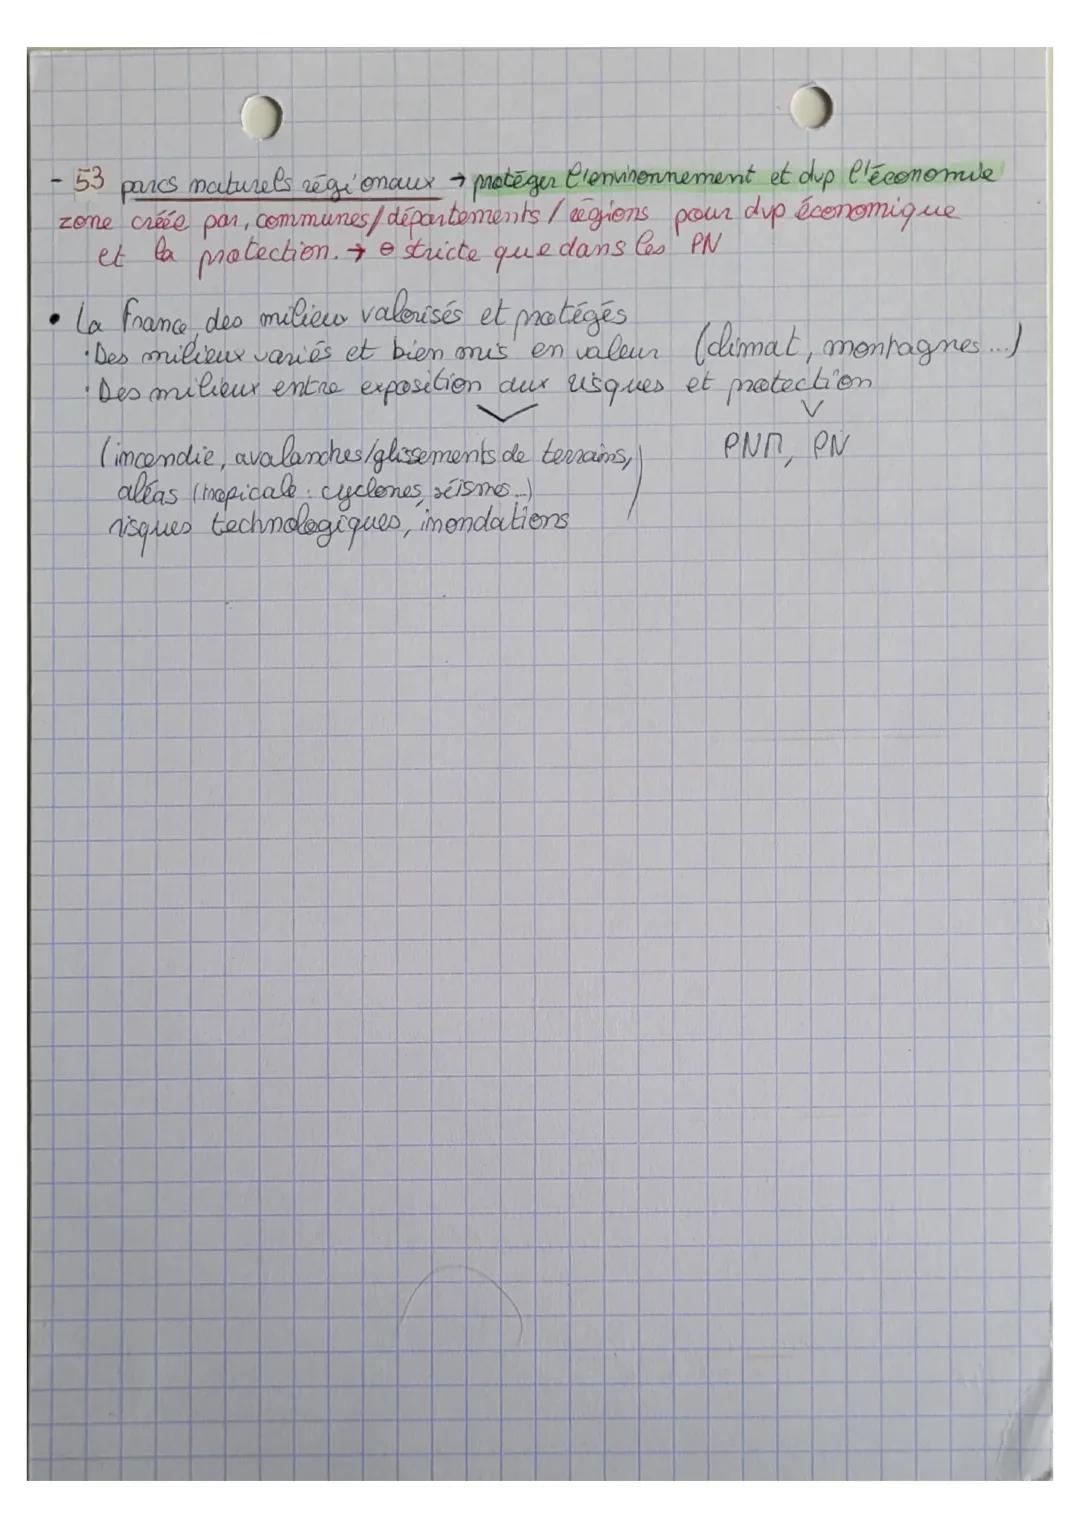 - 53 parcs naturels régionaux → protéger l'environnement et dvp l'économie
zone créée par, communes/départements/régions pour dvp économique
et la protection. → ⊖ stricte que dans les PN
• La France, des milieu valorisés et protégés
• Des milieux variés et bien mis en valeur (climat, montagnes...)
• Des milieux entre exposition aux risques et protection
(incendie, avalanches/glissements de terrains, PNR, PN
aléas (tropicale : cyclones, séismes...)
risques technologiques, inondations)